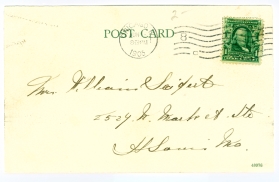 POST CARD
1905
Mrs. William Seifert
2529 N. Market Str
St Louis Mo.